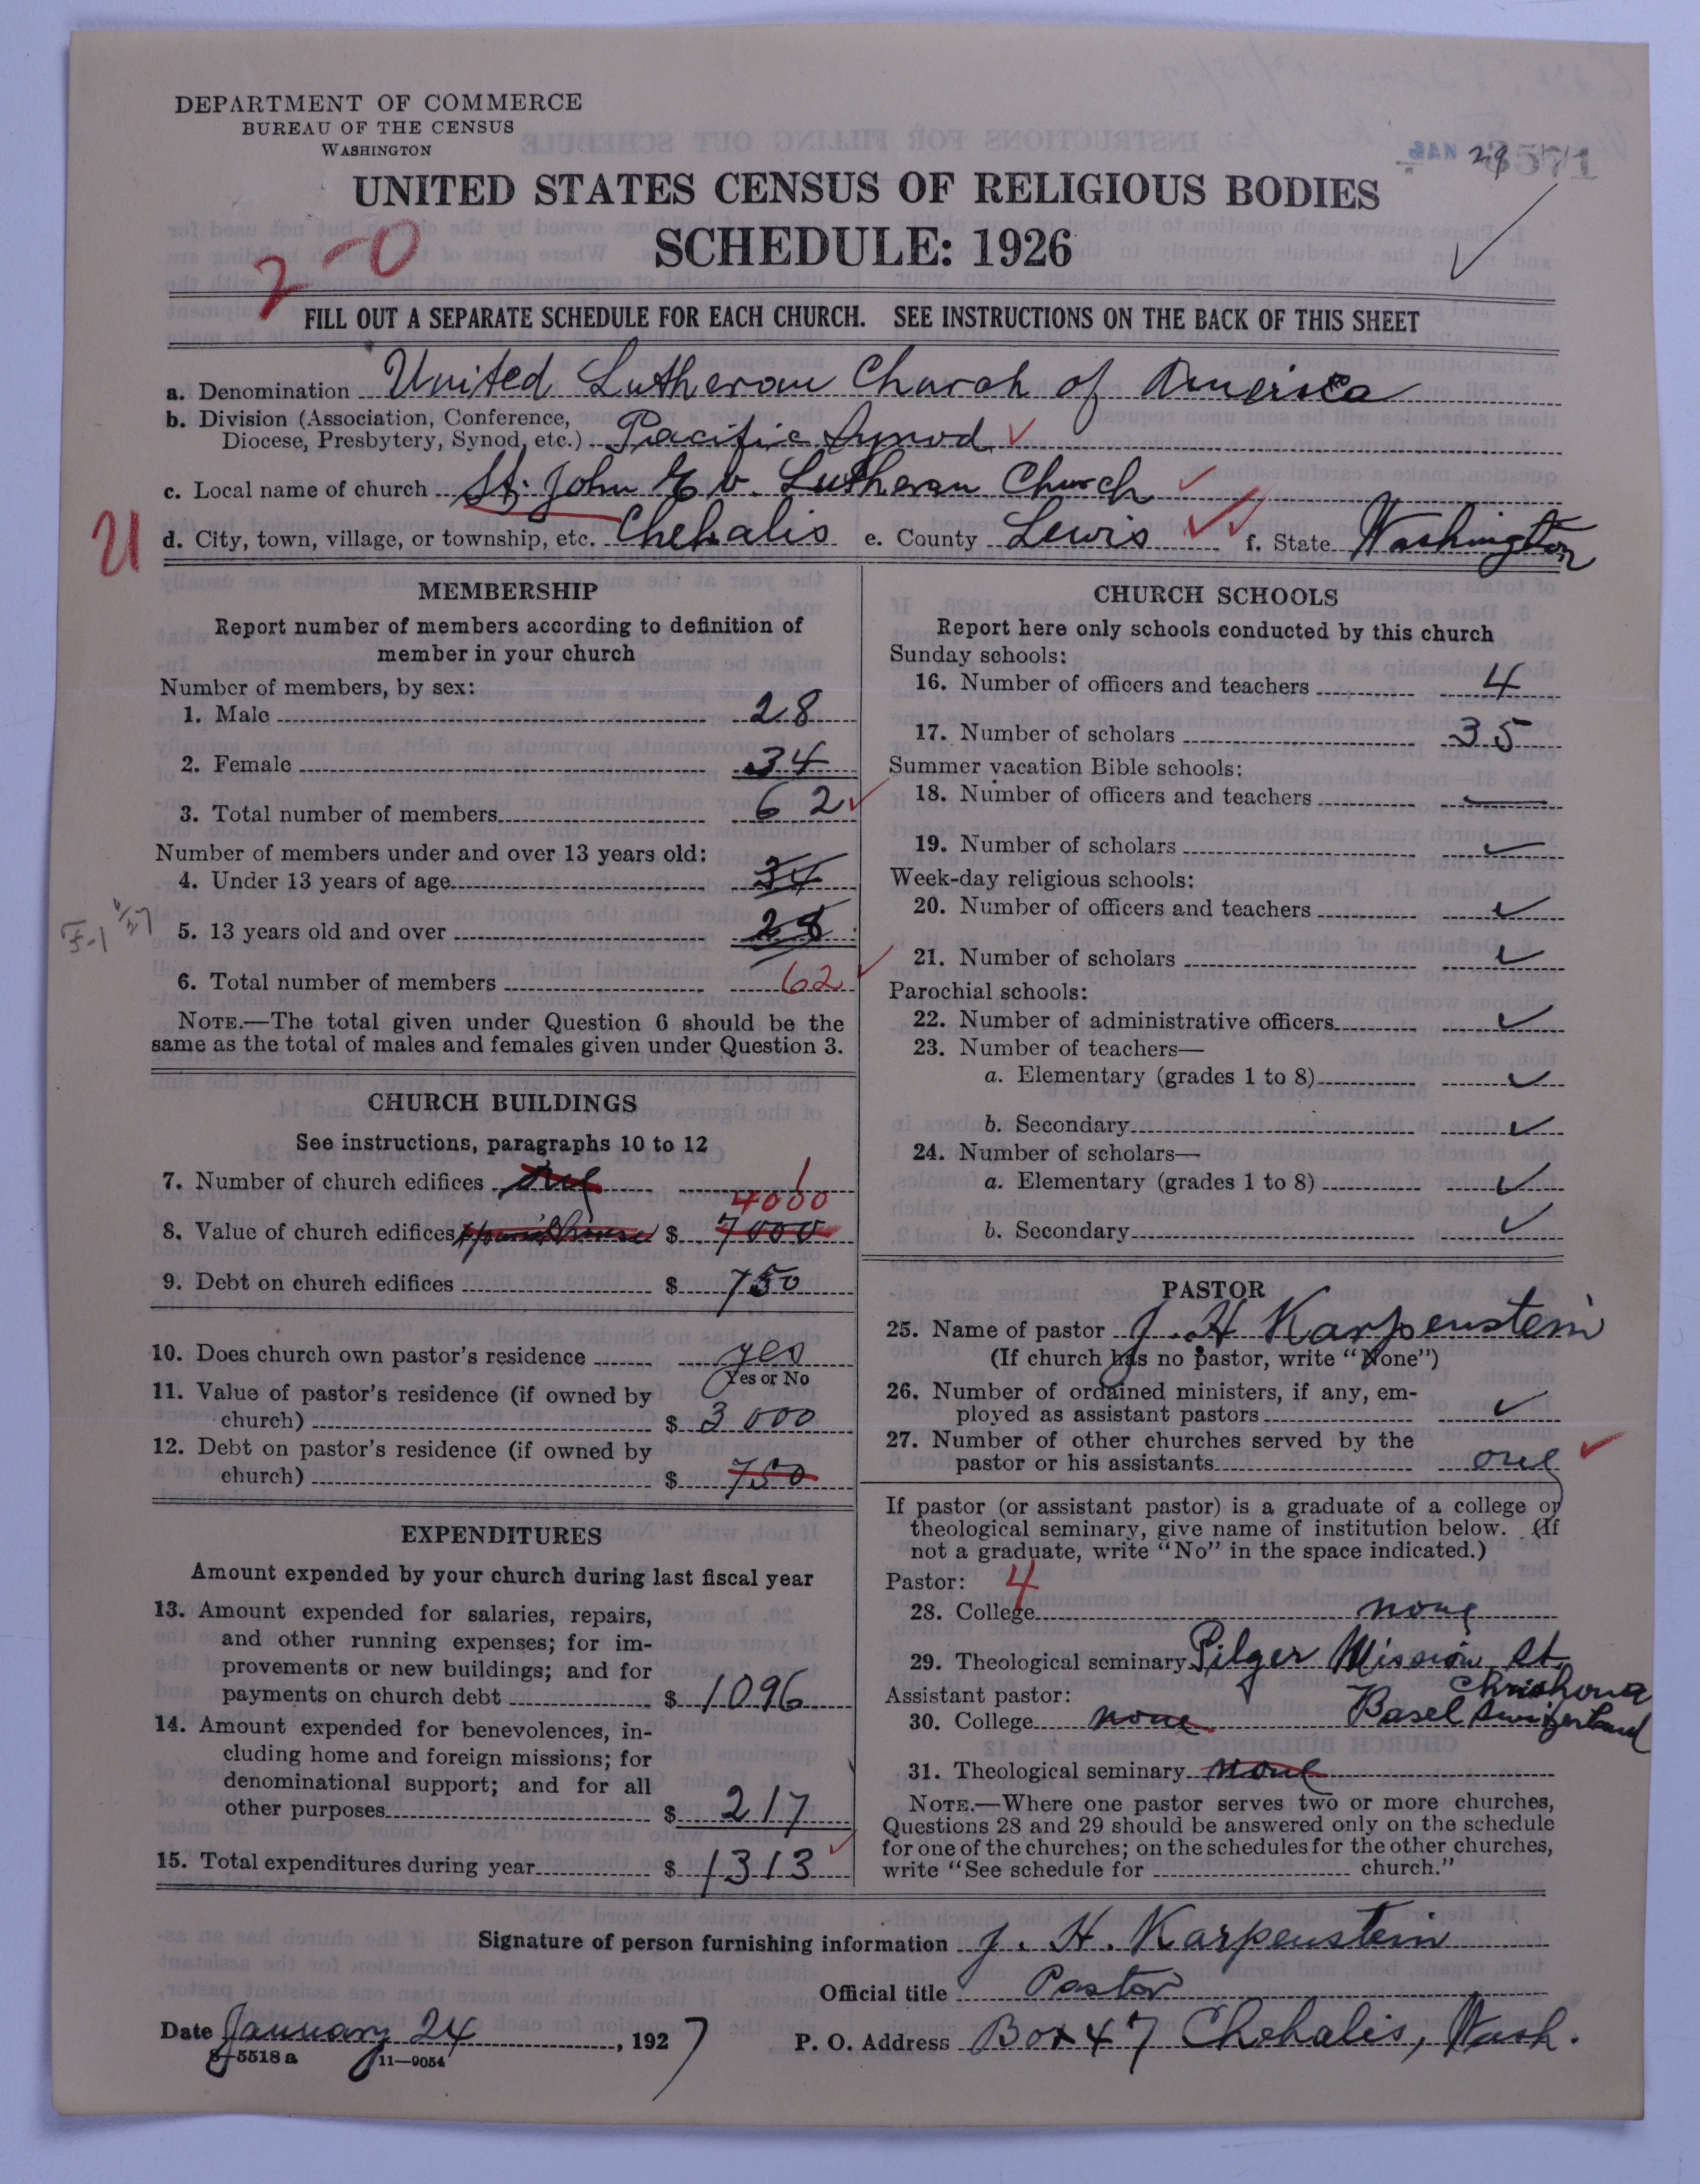 DEPARTMENT OF COMMERCE
BUREAU OF THE CENSUS
WASHINGTON
UNITED STATES CENSUS OF RELIGIOUS BODIES
SCHEDULE: 1926
2-0
FILL OUT A SEPARATE SCHEDULE FOR EACH CHURCH. SEE INSTRUCTIONS ON THE BACK OF THIS SHEET
a. Denomination United Lutheran Church of America
b. Division (Association, Conference,
Diocese, Presbytery, Synod, etc.) Pacific Synod
c. Local name of church St. John Ev. Lutheran Church
21
d. City, town, village, or township, etc. Chehalis e. County Lewis f. State Washington
MEMBERSHIP
Report number of members according to definition of
member in your church
Number of members, by sex:
1. Male 28
2. Female 34
3. Total number of members 62
Number of members under and over 13 years old:
4. Under 13 years of age 34
5. 13 years old and over 28
6. Total number of members 62
NOTE.—The total given under Question 6 should be the
same as the total of males and females given under Question 3.
CHURCH BUILDINGS
See instructions, paragraphs 10 to 12
7. Number of church edifices one 1
4000
8. Value of church edifices $ 7000
9. Debt on church edifices $ 750
10. Does church own pastor's residence yes
Yes or No
11. Value of pastor's residence (if owned by
church) $ 3000
12. Debt on pastor's residence (if owned by
church) $ 750
EXPENDITURES
Amount expended by your church during last fiscal year
13. Amount expended for salaries, repairs,
and other running expenses; for im-
provements or new buildings; and for
payments on church debt $ 1096
14. Amount expended for benevolences, in-
cluding home and foreign missions; for
denominational support; and for all
other purposes $ 217
15. Total expenditures during year $ 1313
CHURCH SCHOOLS
Report here only schools conducted by this church
Sunday schools:
16. Number of officers and teachers 4
17. Number of scholars 35
Summer vacation Bible schools:
18. Number of officers and teachers
19. Number of scholars
Week-day religious schools:
20. Number of officers and teachers
21. Number of scholars
Parochial schools:
22. Number of administrative officers
23. Number of teachers—
a. Elementary (grades 1 to 8)
b. Secondary
24. Number of scholars—
a. Elementary (grades 1 to 8)
b. Secondary
PASTOR
25. Name of pastor J. H Karpenstein
(If church has no pastor, write "None")
26. Number of ordained ministers, if any, em-
ployed as assistant pastors
27. Number of other churches served by the
pastor or his assistants one
If pastor (or assistant pastor) is a graduate of a college or
theological seminary, give name of institution below. (If
not a graduate, write "No" in the space indicated.)
Pastor: 4
28. College none
29. Theological seminary Pilger Mission St.
Chrishona
Assistant pastor:
30. College none Basel Switzerland
31. Theological seminary none
NOTE.—Where one pastor serves two or more churches,
Questions 28 and 29 should be answered only on the schedule
for one of the churches; on the schedules for the other churches,
write "See schedule for church."
Signature of person furnishing information J. H. Karpenstein
Official title Pastor
Date January 24, 1927 P. O. Address Box 47 Chehalis, Wash.
8-5518 a 11-9054